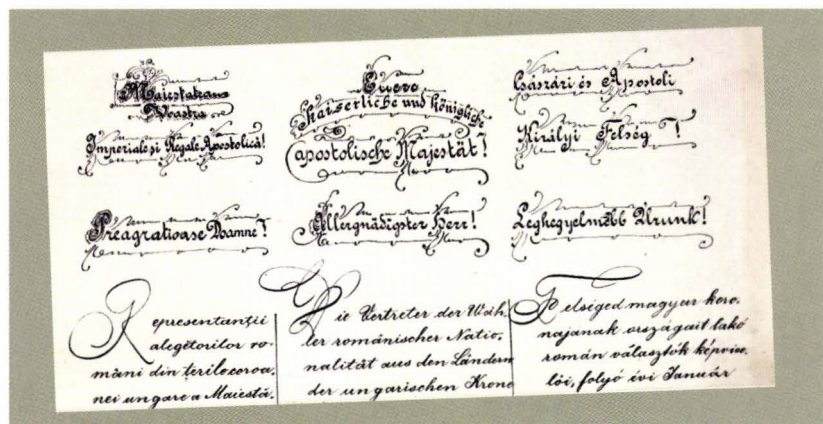 Maiestatea
Voastra
Imperiale si Regale Apostolică!
Preagratioase Doamne!
Representanții
alegĕtorilor ro-
mâni din țerile coroa-
nei ungare a Maiestă-
Euere
Kaiserliche und Königliche
apostolische Majestät!
Allergnädigster Herr!
Die Vertreter der Wäh-
ler românischer Natio-
nalität aus den Ländern
der ungarischen Krone
Császári és Apostoli
Királyi Felség!
Leghegyelmébb Urunk!
Felséged magyar koro-
nájának országait lakó
román választók képvise-
lői, folyó évi Január